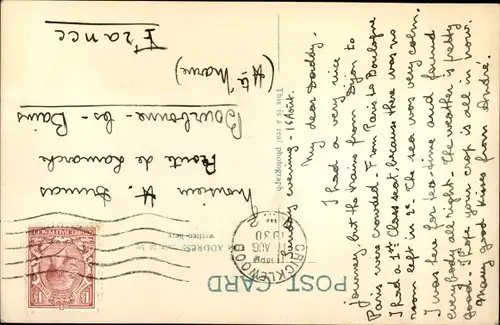 Sunday evening - 16 Août.
My dear Daddy.
I had a very nice
journey but the trains from Dijon to
Paris were crowded. From Paris to Boulogne
I had a 1st Class seat, because there was no
room left in 2d. The sea was very calm.
I was here for tea-time and found
everybody all right. The weather is pretty
good. I hope your crop is all in now.
Many good kisses from Andrée.
This is a real photograph
POST CARD
THE ADDRESS ONLY TO BE
WRITTEN HERE
CRICKLEWOOD
AUG
1930
Monsieur H.
Route de Lamarche
Bourbonne-les-Bains
(Hte Marne)
France